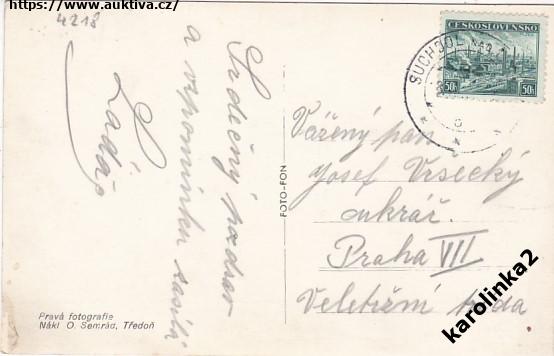 https://www.auktiva.cz/
4218
Srdečný pozdrav
a vzpomínku zasílá
Láďa
Pravá fotografie
Nákl O. Semrád, Třeboň
FOTO-FON
ČESKOSLOVENSKO
50h 50h
SUCHDOL
Vážený pan
Josef Vrsecký
cukrář.
Praha VII
Veletržní třída
karolinka2